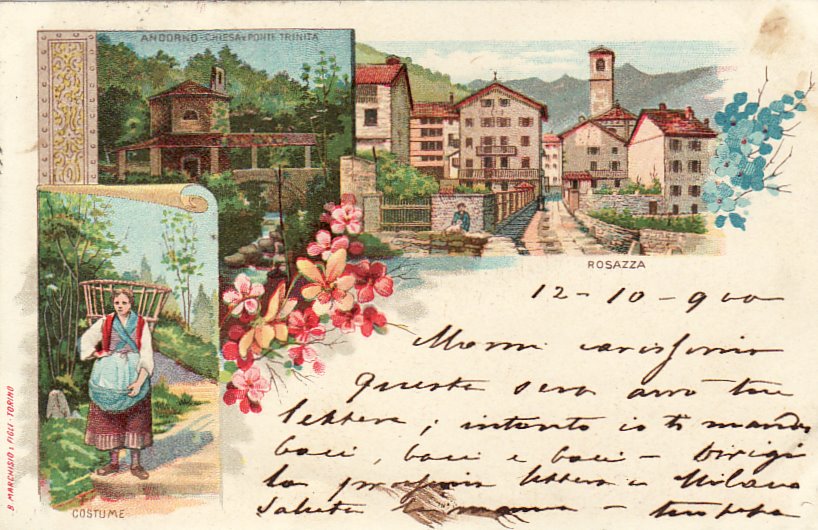 ANDORNO - CHIESA E PONTE TRINITÀ
ROSAZZA
COSTUME
B. MARCHISIO & FIGLI - TORINO
12-10-900
carissimo
Questa sera avrò tue
lettere; intanto io ti mando
baci, baci e baci - Dirigi
la prossima lettera a Milano
Saluta mamma -